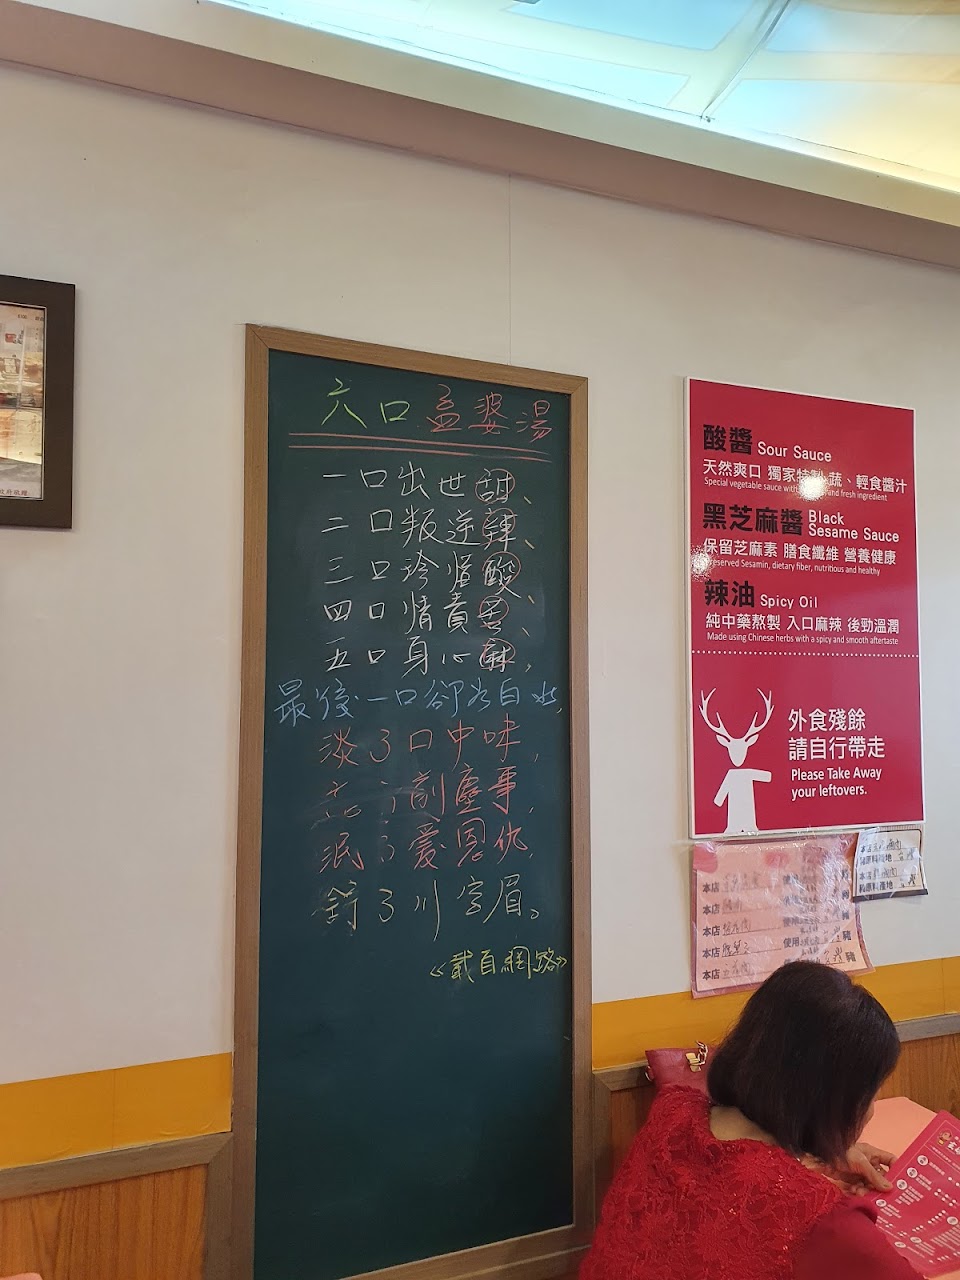 六口孟婆湯
一口出世甜、
二口叛逆辣、
三口珍惜酸、
四口情責苦、
五口身心麻,
最後一口卻為白水,
淡了口中味,
忘了前塵事,
泯了愛恩仇,
舒了川字眉。
《載自網路》
酸醬 Sour Sauce
天然爽口 獨家特製 蔬、輕食醬汁
Special vegetable sauce with and fresh ingredient
黑芝麻醬 Black Sesame Sauce
保留芝麻素 膳食纖維 營養健康
Preserved Sesamin, dietary fiber, nutritious and healthy
辣油 Spicy Oil
純中藥熬製 入口麻辣 後勁溫潤
Made using Chinese herbs with a spicy and smooth aftertaste
外食殘餘
請自行帶走
Please Take Away
your leftovers.
本店
本店
本店
本店 使用 豬
本店 豬